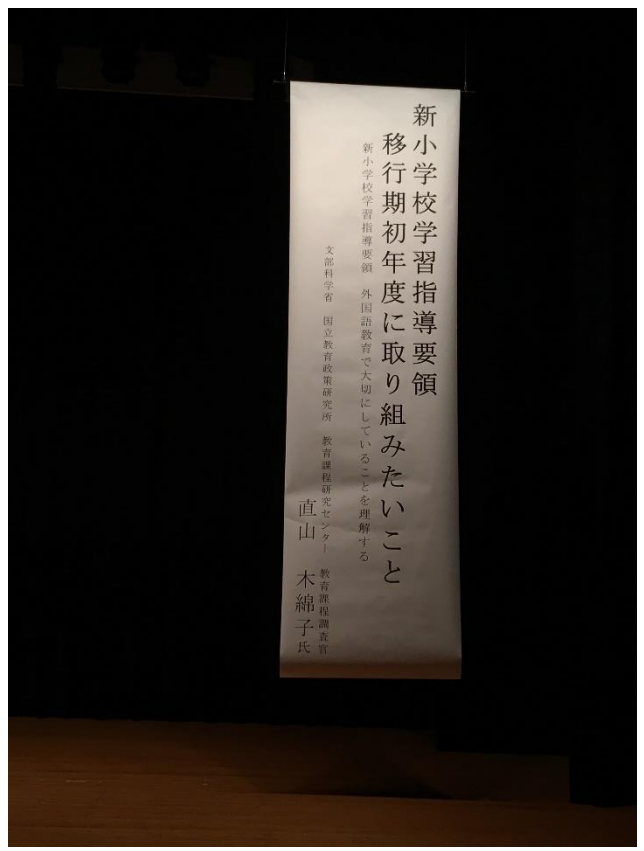 新小学校学習指導要領
移行期初年度に取り組みたいこと
新小学校学習指導要領　外国語教育で大切にしていることを理解する
文部科学省　国立教育政策研究所　教育課程研究センター　教育課程調査官
直山　木綿子氏